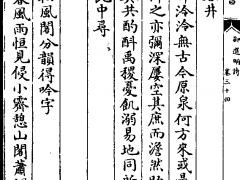 御選明詩
卷三十四
井
泠泠無古今原泉何方來或是
之亦彌深屢空其庶而澹然助
共酌斟禹稷憂飢溺易地同
中尋
風閣分韻得吟字
風雨恒見侵小齋憩山閣蕭